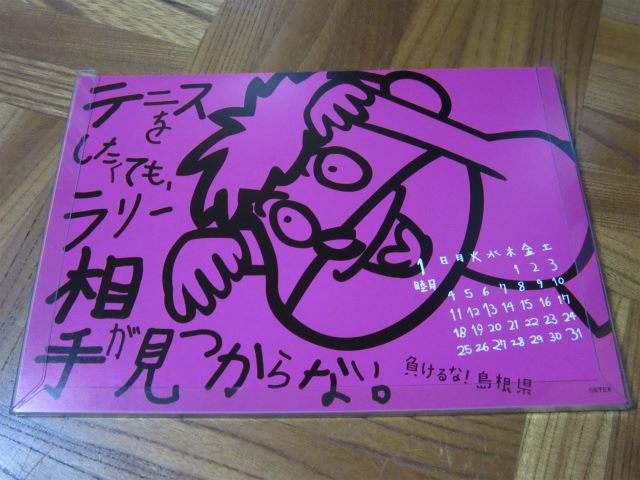 テニス
を
したくても、
ラリー
相
手が見つからない。
負けるな！島根県
1
睦月
日月火水木金土
1 2 3
4 5 6 7 8 9 10
11 12 13 14 15 16 17
18 19 20 21 22 23 24
25 26 27 28 29 30 31